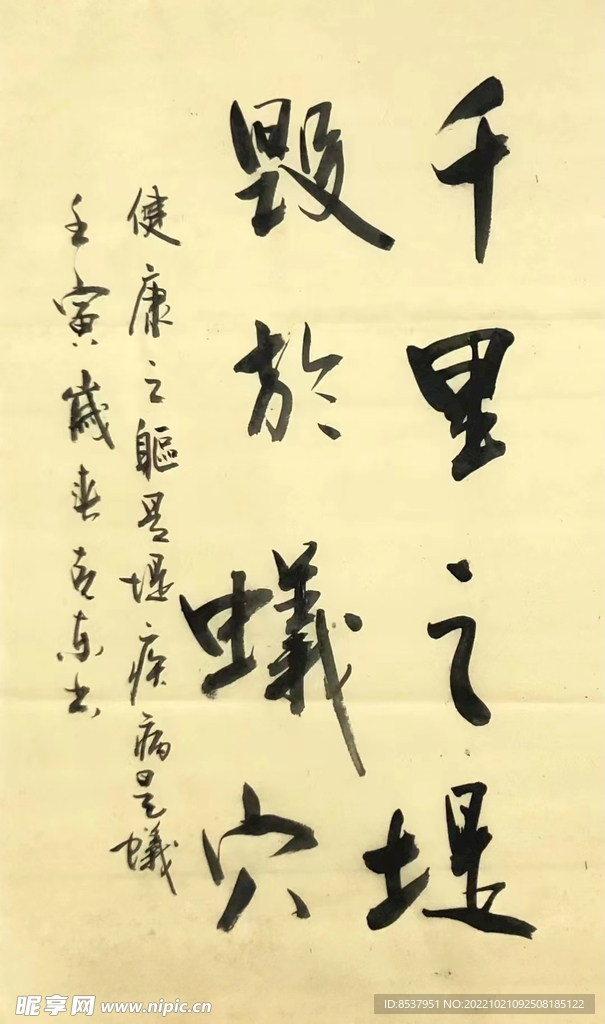 千里之堤
毀於蟻穴
健康之軀是堤疾病是蟻
壬寅歲春克东书
昵享网 www.nipic.cn
ID:8537951 NO:20221021092508185122